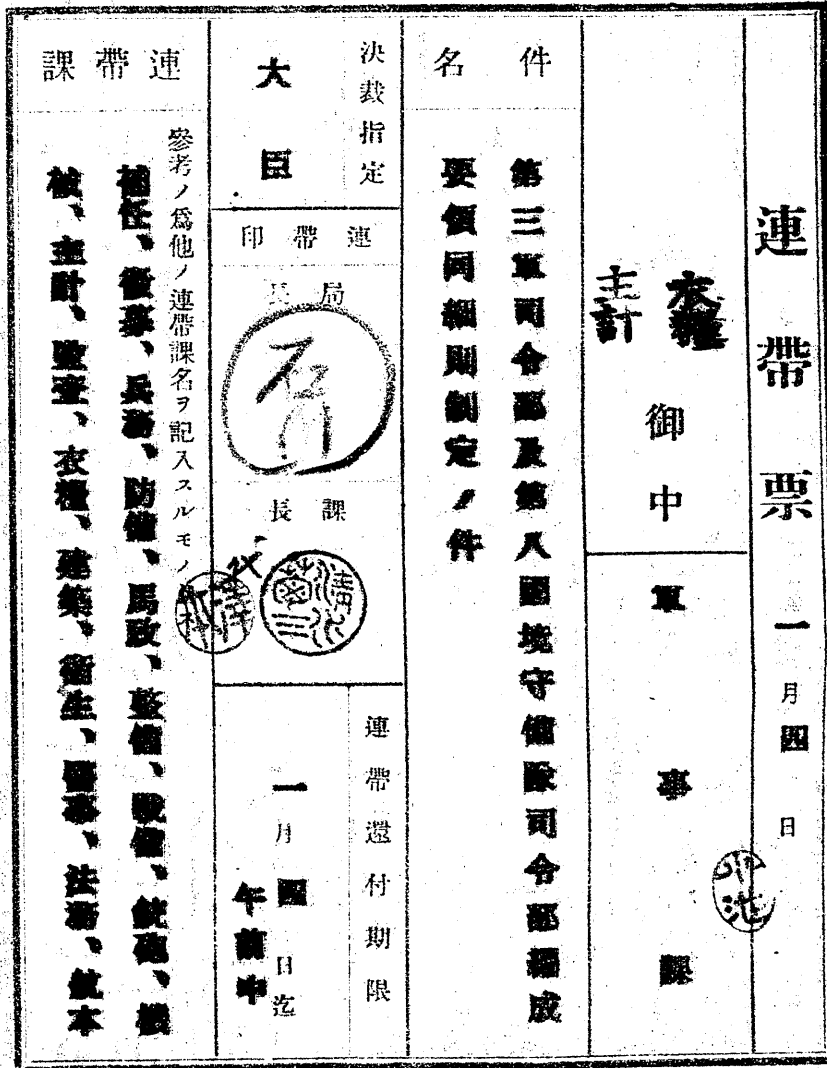 連帶票
一月四日
衣糧
主計
御中
軍事課
件名
第三軍司令部及第八國境守備隊司令部編成
要領同細則制定ノ件
決裁指定
大臣
連帶印
局長
石川
課長
連帶還付期限
一月四日迄
午前中
連帶課
參考ノ爲他ノ連帶課名ヲ記入スルモノ
補任、徵募、兵務、防備、馬政、整備、戰備、銃砲、機
械、主計、監査、衣糧、建築、衞生、醫事、法務、航本